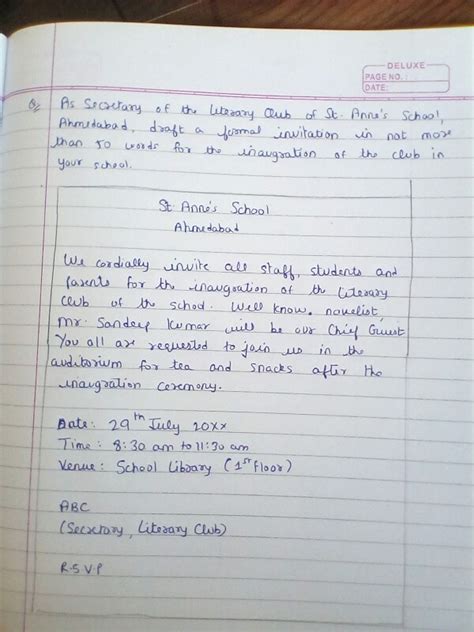 DELUXE
PAGE NO.:
DATE:
Q As Secretary of the Literary Club of St. Anne's School,
Ahmedabad, draft a formal invitation in not more
than 50 words for the inaugration of the club in
your school.
St Anne's School
Ahmedabad
We cordially invite all staff, students and
parents for the inaugration of the Literary
Club of the school. Well know. novelist,
Mr. Sandeep Kumar will be our Chief Guest
You all are requested to join us in the
auditorium for tea and snacks after the
inaugration ceremony.
Date: 29th July 20xx
Time: 8:30 am to 11:30 am
Venue: School Library (1st Floor)
ABC
(Secretary, Literary Club)
R.S.V.P